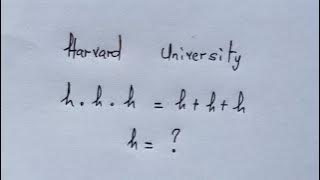 Harvard University
h . h . h = h + h + h
h = ?